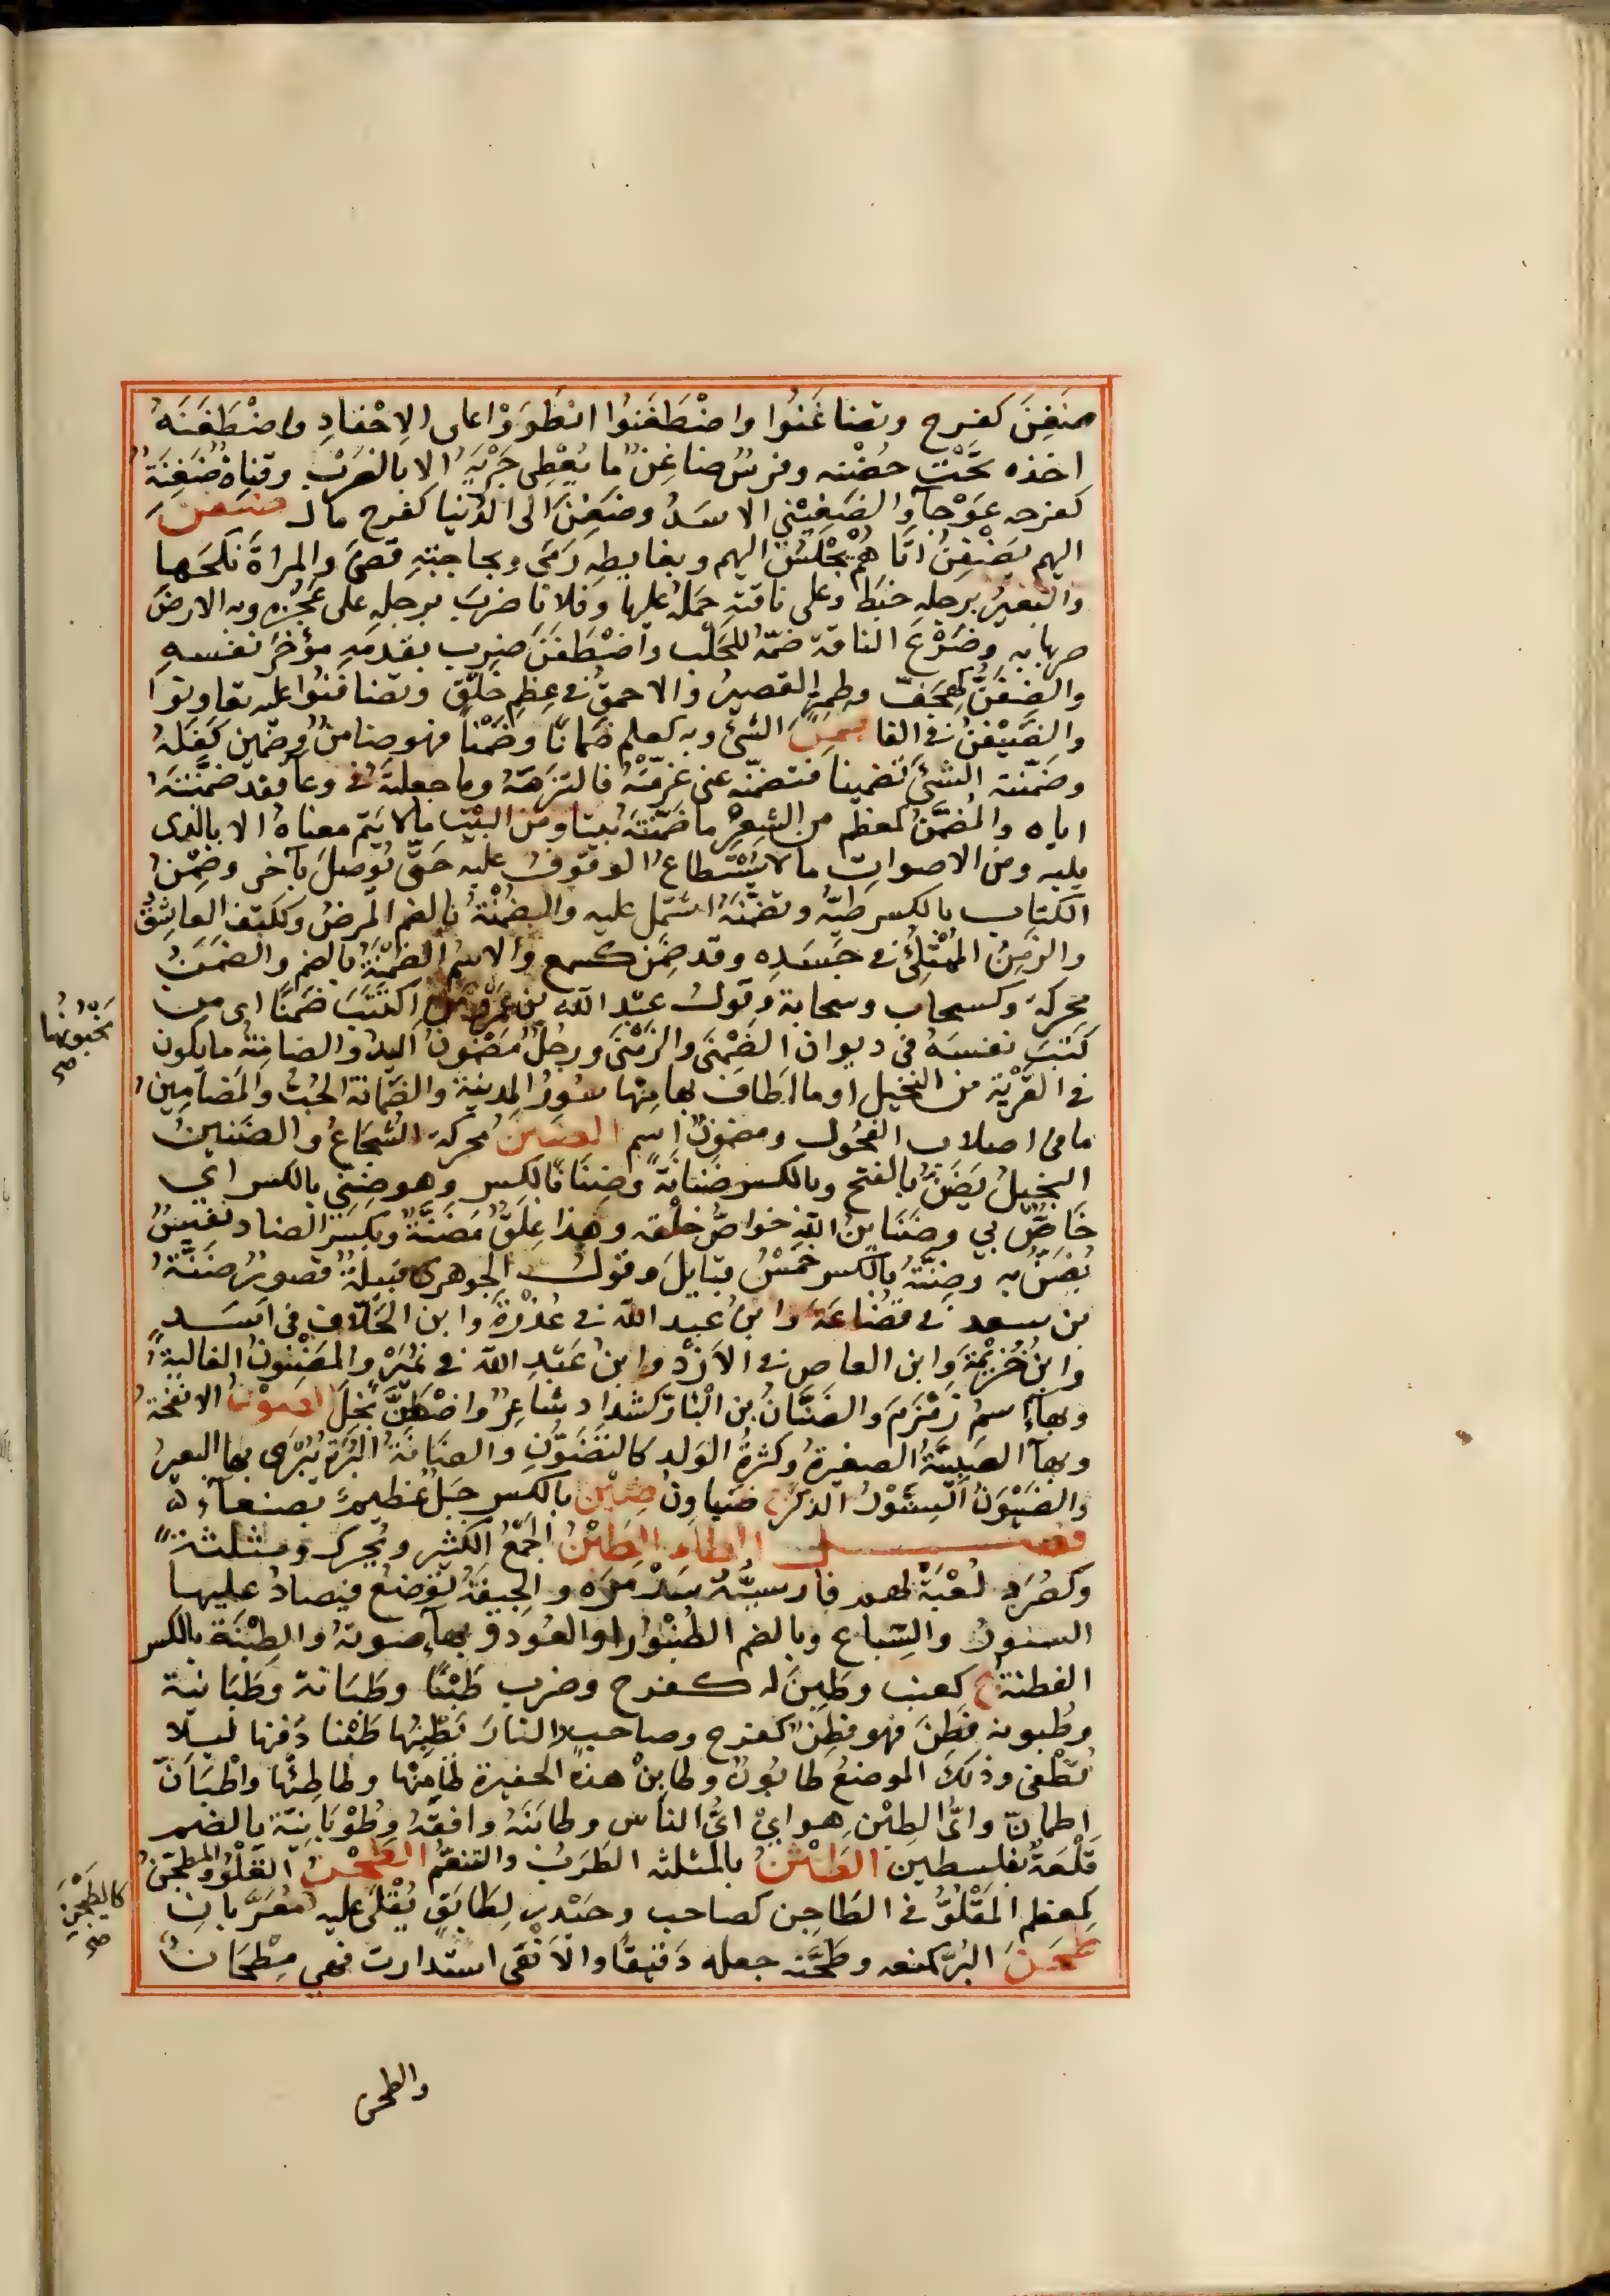 ضَغِنَ كفرح وتضاغَنُوا واضْطَغَنُوا انْطَوَوْا على الاحْقادِ واضْطَغَنَهُ
اخذه تَحْتَ حُضْنه وفرسٌ ضاغِنٌ ما يُعْطِى جَرْيَهُ الا بالضَرْبِ وقناةٌ ضَغِنَةٌ
كفرحه عَوْجآءُ والضَيغَنِيُّ الاسَدُ وضَغِنَ الى الدُنيا كفرح مال ضَفَنَ
اليهم يَضْفِنُ اتَاهُم يَجْلِسُ اليهم وبغايطِهِ رَمَى وبحاجتِهِ قضى والمراةَ نكَحَها
والبَعِيرُ برجله خبَط وعلى ناقتِهِ حَمَلَ عليها وفلانا ضرَبَ برجلِهِ على عَجُزِهِ وبه الارضَ
ضربها به وضَرْعَ الناقة ضمّهُ للحَلْب واضْطَفَنَ ضرب بقدمِهِ مؤخَّرَ نفسهِ
والضِفَنُّ كهِجَفٍّ وطِمِرٍّ القصيرُ والاحمقُ فى عِظم خَلْقٍ وتضافنُوا عليه تعاونوا
والضَيْفنُ فى الفا ضَمِنَ الشئَ وبه كعلم ضَمانًا وضَمْنًا فهو ضامنٌ وضَمِين كَفَلَهُ
وضمّنته الشئَ تضمينا فتضمّنه عنى غرّمتُهُ فالتزَمَهُ وما جعلتَهُ فى وعآء فقد ضمّنْتَهُ
اياه والمُضمَّنُ كمعظم من الشِعرِ ما ضَمّنْتَهُ بيتا ومن البيت مالا يتم معناهُ الا بالذى
يليه ومن الاصوات مالا يُسْتَطاعُ الوقوفُ عليه حَتّى يُوصَلَ بآخر وضِمْنُ
الكتاب بالكسر طيُّهُ وتضمَّنَهُ اشتمل عليه والضُمْنَةُ بالضم المرضُ وككتف العاشِقُ
والزَمِنُ المُبْتَلَى فى جَسَدِه وقد ضَمِن كسمع والاسمُ الضُمْنَةُ بالضم والضَمَنُ
محركة وكسحاب وسحابة وقول عبد الله بن عَمْرٍو مَن اكتَتَبَ ضَمِنًا اى من
كَتَبَ نفسَهُ فى ديوان الضَمْنَى والزَمْنَى ورجُلٌ مَضْمُونُ اليدِ مخبُونُها صح والضامِنَةُ مايكون
فى القَرْيَة من النخيل او ما اطاف بها مِنها سُورُ المدينة والضَمَانة الحُبُّ والمَضامِينُ
ما فى اصلاب الفحُول ومضمونٌ اسم الضَنَنُ محركة الشجاعُ والضَنينُ
البخيلُ يَضَنُّ بالفتح وبالكسر ضَنانَةً وضِنَّا بالكسر وهو ضِنّي بالكسر اى
خَاصٌّ بي وضَنَاينُ اللهِ خواصُّ خلْقه وهذا عِلقٌ مَضَنَّةٌ وبكسر الضاد نفِيسٌ
يُضَنُّ به وضِنَّةُ بالكسر خمْسُ قبايلَ وقول الجوهرى قبيلةٌ قصورٌ ضِنَّةُ
بن سعد فى قضُاعَةَ وابنُ عبد الله فى عُذْرَةَ وابن الحَلّاف فى اسَدِ
وابنُ خُزيمْةَ وابن العاص فى الاَزْد وابنُ عَبْدِ الله فى نمُيَر والمضنونُ الغاليةُ
وبهآءٍ اسمُ زَمْزَمَ والضَنَّانُ بن المَبارّ كشداد شاعِرٌ واضْطَنَّ بَخِلَ الضَوْنُ الانفَحَةُ
وبهآء الصَبِيَّةُ الصغيرةُ وكثرةُ الوَلد كالتَضَوُّنِ والضَانَةُ البُرَةُ يُبْرَى بها البعيرُ
والضَيْوَنُ السِنَّوْرُ الذكَرُ ج ضَياوِنُ ضِيْنٌ بالكسر جَبلٌ عظيمٌ بصنعآء
فصل الطاء الطَبْنُ الجَمْعُ الكثير ويُحرك ومثلثةً
وكصُرَد لُعْبَةٌ لهم فارسيَّتُه سِدْمَرَه والجيفَةُ توضع فيصادُ عليها
النسورُ والسِباع وبالضم الطُنْبُورُ او العُود وبهآءٍ صوتهُ والطِبْنَةُ بالكسر
الفطنةُ ج كعِنب وطَبِنَ له كفرح وضرب طَبْنًا وطَبَانَة وطَبَانيَة
وطُبونة فَطِنَ فهو فطِنٌ كفرح وصاحبٌ والنارَ يَطْبِنُها طَبْنا دَفنها ليلا
تُطْفى وذلك الموضعُ طابُونٌ وطابِنْ هذه الحفيرة طَامِنْها وطاطِئْها واطْبَاَنَّ
اطمانّ واىُّ الطَبْنِ هو اىْ اىُّ الناس وطابَنَهُ وافقَهُ وطُوْبَانِيَّة بالضم
قَلْعَةٌ بفلسطين الطَثْنُ بالمثلثه الطَرَبُ والتنعّمُ الطَجْنُ القَلْوُ والمطجّنُ كالطَجِن صح
كمعظم المَقْلُوُّ فى الطَاجِن كصاحب وحَيْدَر لطَابَقٍ يُقْلَى عليه مُعَرَّبانِ
طَحَنَ البُرَّ كمنعه وطَحَّنه جعله دَقيقًا والاَفْعَى استدارت فهى مِطْحَانٌ
والطحن